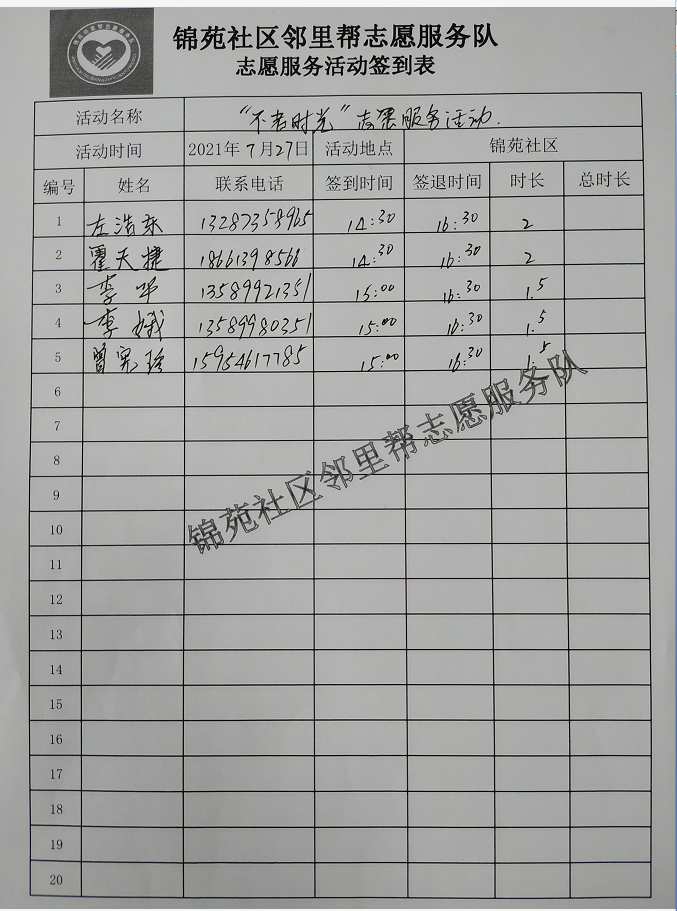 锦苑社区邻里帮志愿服务队
志愿服务活动签到表
活动名称 “不老时光”志愿服务活动.
活动时间 2021年7月27日 活动地点 锦苑社区
编号 姓名 联系电话 签到时间 签退时间 时长 总时长
1 左浩东 13287358965 14:30 16:30 2
2 霍天捷 18661398566 14:30 16:30 2
3 李华 13589921351 15:00 16:30 1.5
4 李娥 13589980351 15:00 16:30 1.5
5 曾宪玲 15954617785 15:00 16:30 1.5
6
7
8
锦苑社区邻里帮志愿服务队
9
10
11
12
13
14
15
16
17
18
19
20